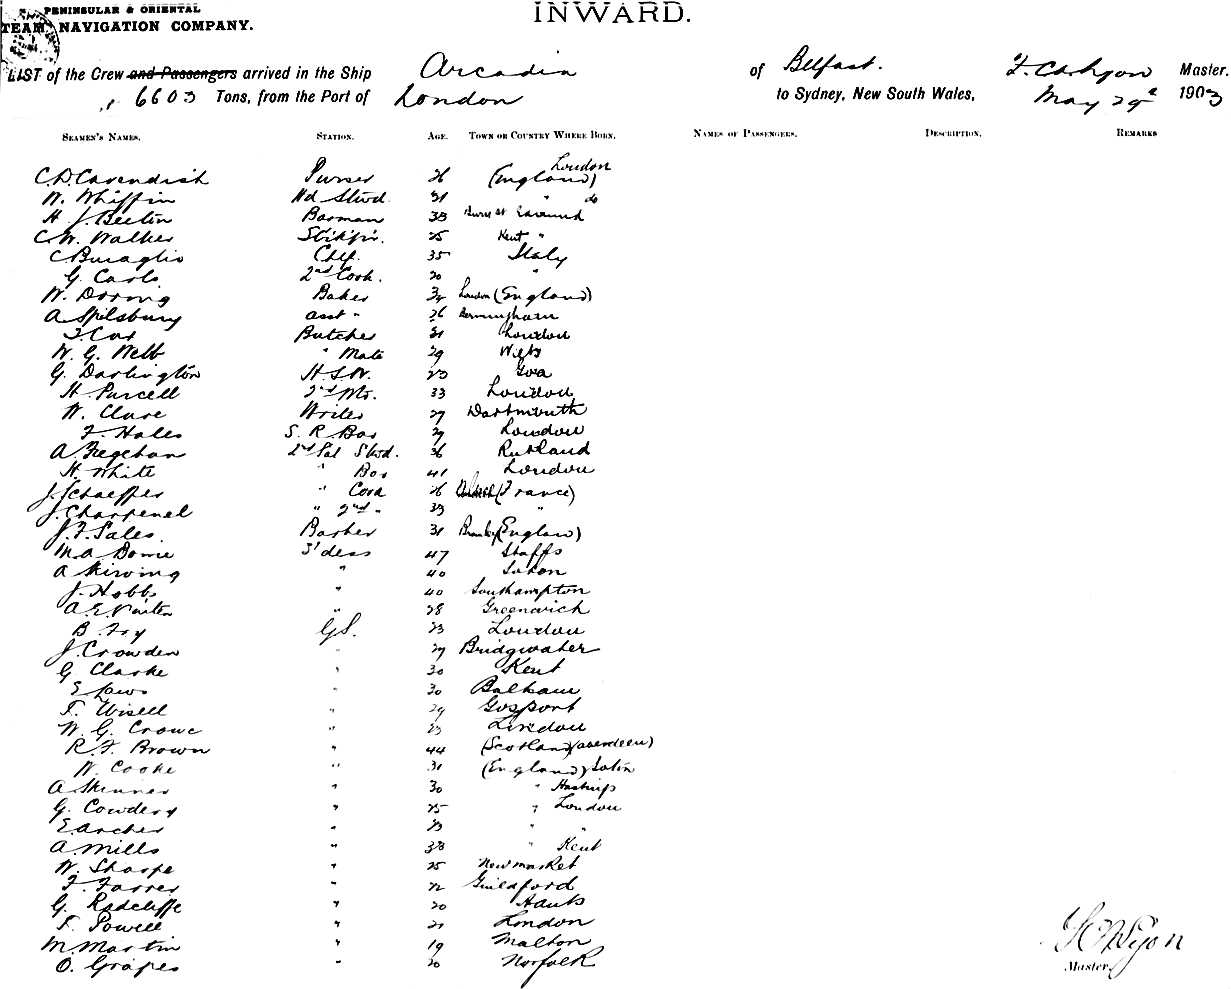 PENINSULAR & ORIENTAL
TEAM NAVIGATION COMPANY.
INWARD.
LIST of the Crew and Passengers arrived in the Ship Arcadia of Belfast. Master.
6603 Tons, from the Port of London to Sydney, New South Wales, May 29th 1903
SEAMEN'S NAMES. STATION. AGE. TOWN OR COUNTRY WHERE BORN. NAMES OF PASSENGERS. DESCRIPTION. REMARKS
C. D. Cavendish Purser 26 London (England)
W. Whiffin Hd Stwd. 31 " do
H. J. Beeton Barman 33
C. W. Walker 25 Kent "
C. Buraglio Chef. 35 Italy
G. Carlo 2nd Cook. 20 "
W. Dorong Baker 34 London (England)
A. Spilsbury Asst " 26 Birmingham
Butcher 31 London
W. G. Webb " Mate 29 Wilts
G. Darlington H.S.W. 23 Goa
H. Purcell 33 London
W. Clare Writer 27 Dartmouth
F. Hales 29 London
A. 2nd Sal Stwd. 36 Rutland
H. White " 41 London
J. Schaeffer " 26 (France)
J. Charpenel " 2nd " 33 "
J. F. Sales Barber 31 Bromley (England)
M. A. Bowie 47 Staffs
A. Skirving " 40
J. Hobbs " 40 Southampton
A. E. " 28 Greenwich
B. Foy G.S. 23 London
J. Crowden " 29 Bridgwater
G. Clarke " 30 Kent
E. Laws " 30 Balham
F. Wisell " 29 Gosport
W. G. Crowe " 23 London
R. F. Brown " 44 (Scotland) (Aberdeen)
W. Cooke " 31 (England)
A. Skinner " 30 " Hastings
G. Cowdery " 25 " London
E. Archer " 23 " "
A. Mills " 38 " Kent
W. Sharpe " 25 Newmarket
F. Farrer " 22 Guildford
G. Radcliffe " 20 Hants
F. Powell " 21 London
M. Martin " 19 Malton
O. Grapes " 20 Norfolk
Master.